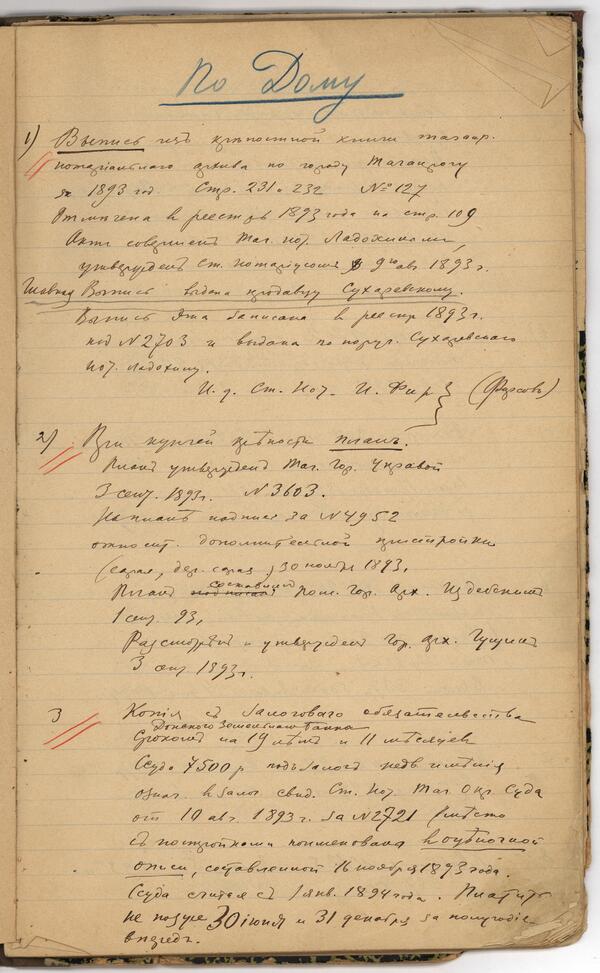 По Дому
1) Выпись изъ крѣпостной книги таганр.
нотаріальнаго архива по городу Таганрогу
за 1893 год. Стр. 231 и 232 № 127
Отмѣчена в реестрѣ 1893 года на стр. 109
Актъ совершенъ Таг. нот. Ладохинымъ,
утвержденъ Ст. нотаріусомъ 9го авг. 1893 г.
Выпись выдана продавцу Сухаревскому.
Выпись эта записана в реестр 1893 г.
под N 2703 и выдана по поруч. Сухаревскаго
нот. Ладохину.
И. д. Ст. Нот. И. Фир (Фирсовъ)
2) При купчей крѣпости планъ.
Планъ утвержденъ Таг. Гор. Управой
3 сент. 1893 г. N 3603.
На планѣ надпись за N 4952
относит. дополнительной пристройки
(сарая, дер. сарая) 30 ноября 1893,
Планъ составилъ пом. Гор. Арх.
1 сент. 93,
Разсмотрѣн и утвержден Гор. Арх.
3 сент. 1893 г.
3 Копія съ залоговаго обязательства
Донского Земельнаго банка
Срокомъ на 19 лѣтъ и 11 мѣсяцев
Ссуда 7500 р подъ залогъ недв. имѣнія
означ. в залог. свид. Ст. Нот. Таг. Окр. Суда
от 10 авг. 1893 г. за N 2721 (мѣсто
съ постройками поименована в оцѣночной
описи, составленной 16 ноября 1893 года.
Ссуда считая съ 1 янв. 1894 года. Платить
не позже 30 іюня и 31 декабря за полугодіе
впередъ.